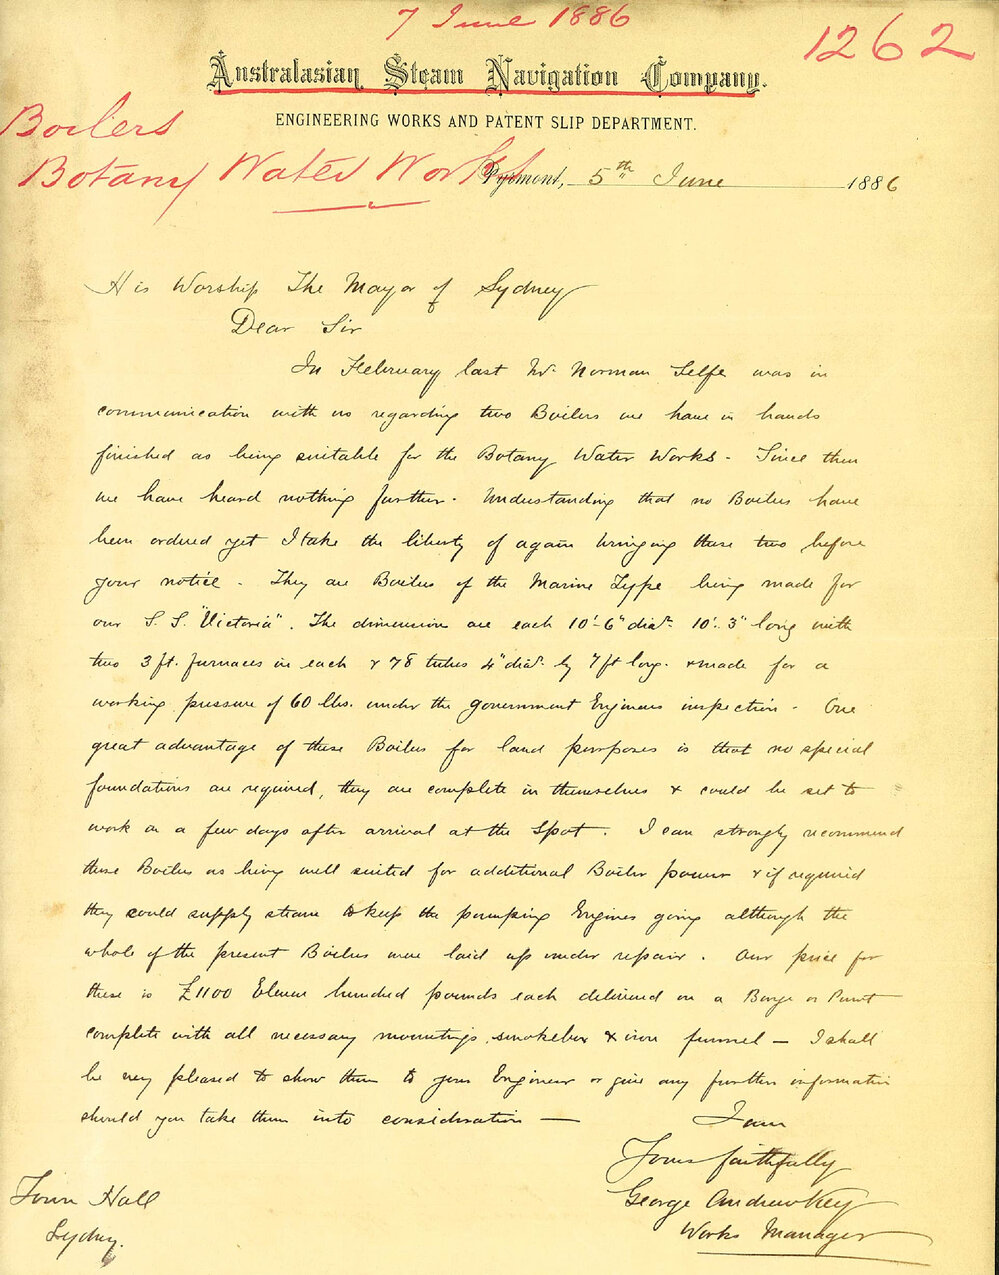 7 June 1886
1262
Australasian Steam Navigation Company.
ENGINEERING WORKS AND PATENT SLIP DEPARTMENT.
Boilers
Botany Water Works
Pyrmont, 5th June 1886
His Worship The Mayor of Sydney
Dear Sir
In February last Mr. Norman Selfe was in
communication with us regarding two Boilers we have in hands
finished as being suitable for the Botany Water Works - Since then
we have heard nothing further. Understanding that no Boilers have
been ordered yet I take the liberty of again bringing these two before
your notice - They are Boilers of the Marine Type being made for
our S. S. "Victoria". The dimension are each 10'-6" diar. 10'. 3" long with
two 3 ft. furnaces in each & 78 tubes 4" diar. by 7 ft long. & made for a
working pressure of 60 lbs. under the Government Engineers inspection - One
great advantage of these Boilers for land purposes is that no special
foundations are required, they are complete in themselves & could be set to
work in a few days after arrival at the spot. I can strongly recommend
these Boilers as being well suited for additional Boiler power & if required
they could supply steam to keep the pumping Engines going although the
whole of the present Boilers were laid up under repair. Our price for
these is £1100 Eleven hundred pounds each delivered on a Barge or Punt
complete with all necessary mountings, smokebox & iron funnel - I shall
be very pleased to show them to your Engineer or give any further information
should you take them into consideration -
I am
Yours faithfully
George Andrew Key
Works Manager
Town Hall
Sydney.